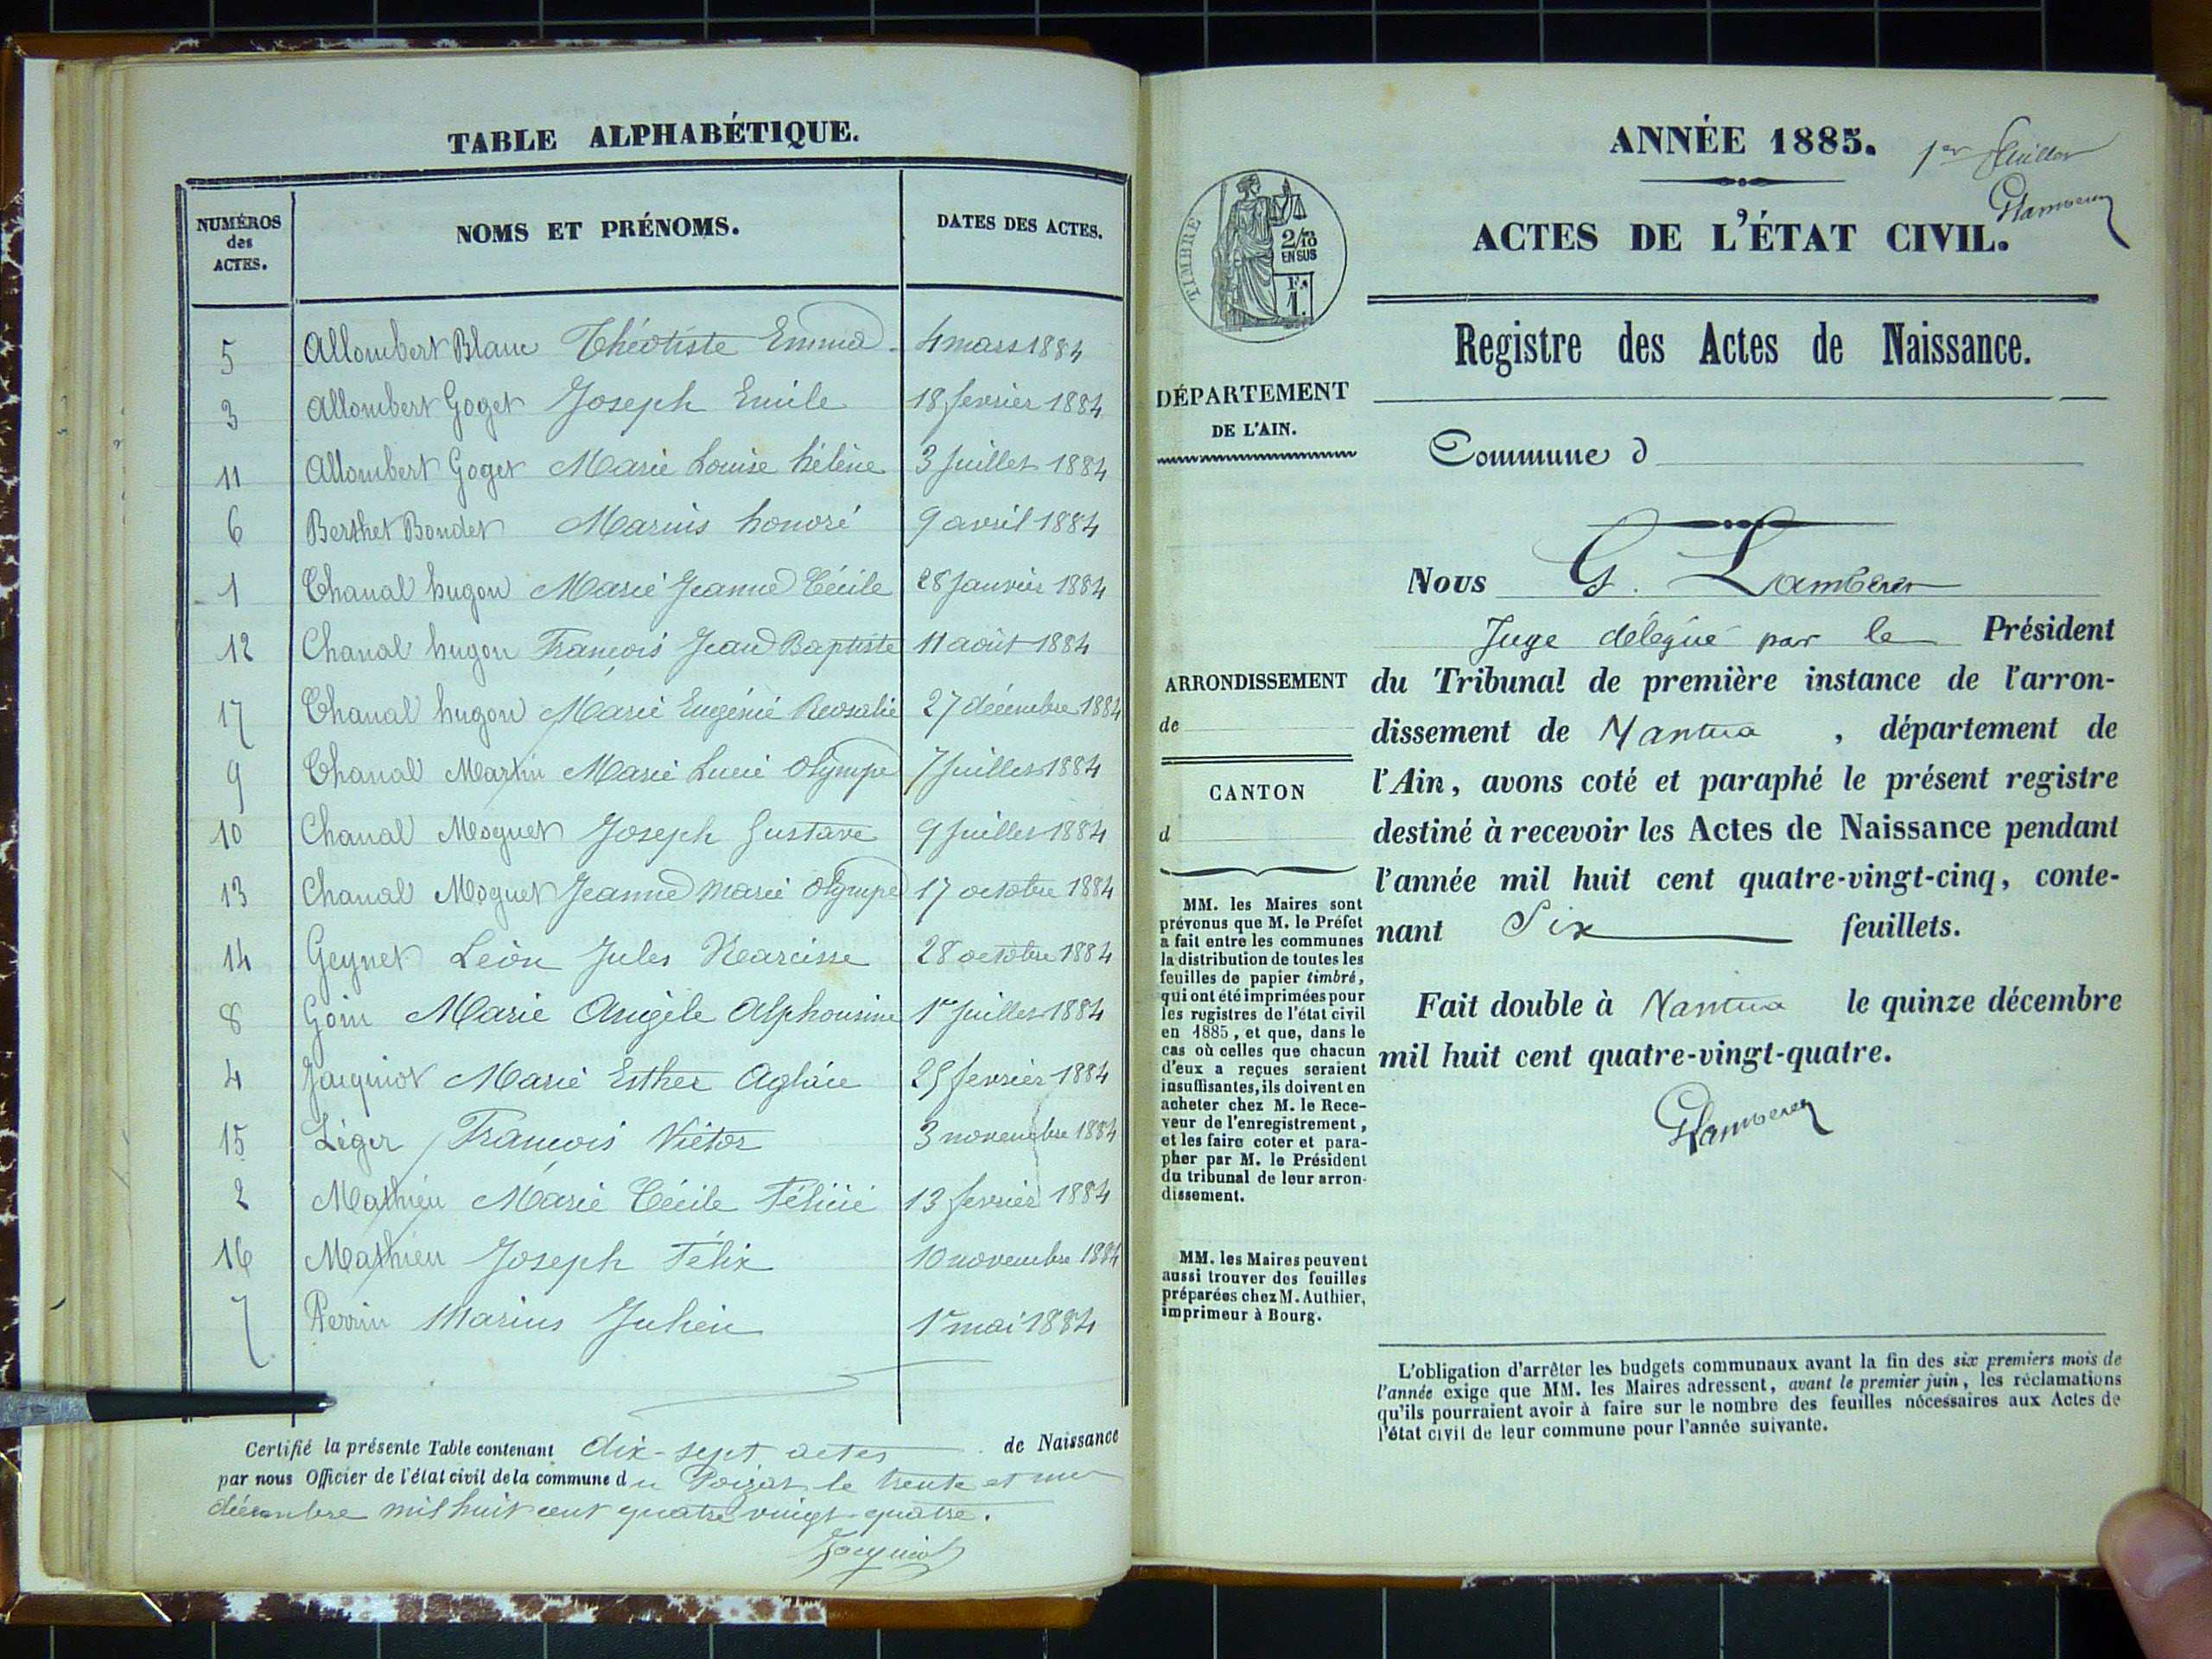 TABLE ALPHABÉTIQUE.
NUMÉROS
des
ACTES.
NOMS ET PRÉNOMS.
DATES DES ACTES.
5 Allombert Blanc Théotiste Emma 4 mars 1884
3 Allombert Goget Joseph Emile 18 fevrier 1884
11 Allombert Goget Marie Louise hélène 3 Juillet 1884
6 Berthet Bondet Marius honoré 9 avril 1884
1 Chanal hugon Marie Jeanne Cécile 28 Janvier 1884
12 Chanal hugon François Jean Baptiste 11 août 1884
17 Chanal hugon Marie Eugénie Rosalie 27 décembre 1884
9 Chanal Martin Marie Lucie Olympe 7 Juillet 1884
10 Chanal Moguet Joseph Gustave 9 Juillet 1884
13 Chanal Moguet Jeanne Marie Olympe 17 octobre 1884
14 Geynet Léon Jules Narcisse 28 octobre 1884
8 Goin Marie Angèle Alphonsine 1er Juillet 1884
4 Jacquiot Marie Esther Aglaée 25 fevrier 1884
15 Léger François Victor 3 novembre 1884
2 Mathieu Marie Cécile Félicie 13 fevrier 1884
16 Mathieu Joseph Félix 10 novembre 1884
7 Perrin Marius Julien 1er mai 1884
Certifié la présente Table contenant dix-sept actes de Naissance
par nous Officier de l'état civil de la commune du Poizat le trente et un
décembre mil huit cent quatre vingt-quatre.
Jacquiot
ANNÉE 1885.
1er feuillet
GLambert
TIMBRE
2/10
EN SUS
F.
1.
ACTES DE L'ÉTAT CIVIL.
Registre des Actes de Naissance.
DÉPARTEMENT
DE L'AIN.
Commune d
Nous G. Lambert
Juge délégué par le Président
ARRONDISSEMENT
de
CANTON
d
du Tribunal de première instance de l'arron-
dissement de Nantua , département de
l'Ain, avons coté et paraphé le présent registre
destiné à recevoir les Actes de Naissance pendant
l'année mil huit cent quatre-vingt-cinq, conte-
nant Six feuillets.
Fait double à Nantua le quinze décembre
mil huit cent quatre-vingt-quatre.
GLambert
MM. les Maires sont
prévenus que M. le Préfet
a fait entre les communes
la distribution de toutes les
feuilles de papier timbré,
qui ont été imprimées pour
les registres de l'état civil
en 1885, et que, dans le
cas où celles que chacun
d'eux a reçues seraient
insuffisantes, ils doivent en
acheter chez M. le Rece-
veur de l'enregistrement,
et les faire coter et para-
pher par M. le Président
du tribunal de leur arron-
dissement.
MM. les Maires peuvent
aussi trouver des feuilles
préparées chez M. Authier,
imprimeur à Bourg.
L'obligation d'arrêter les budgets communaux avant la fin des six premiers mois de
l'année exige que MM. les Maires adressent, avant le premier juin, les réclamations
qu'ils pourraient avoir à faire sur le nombre des feuilles nécessaires aux Actes de
l'état civil de leur commune pour l'année suivante.